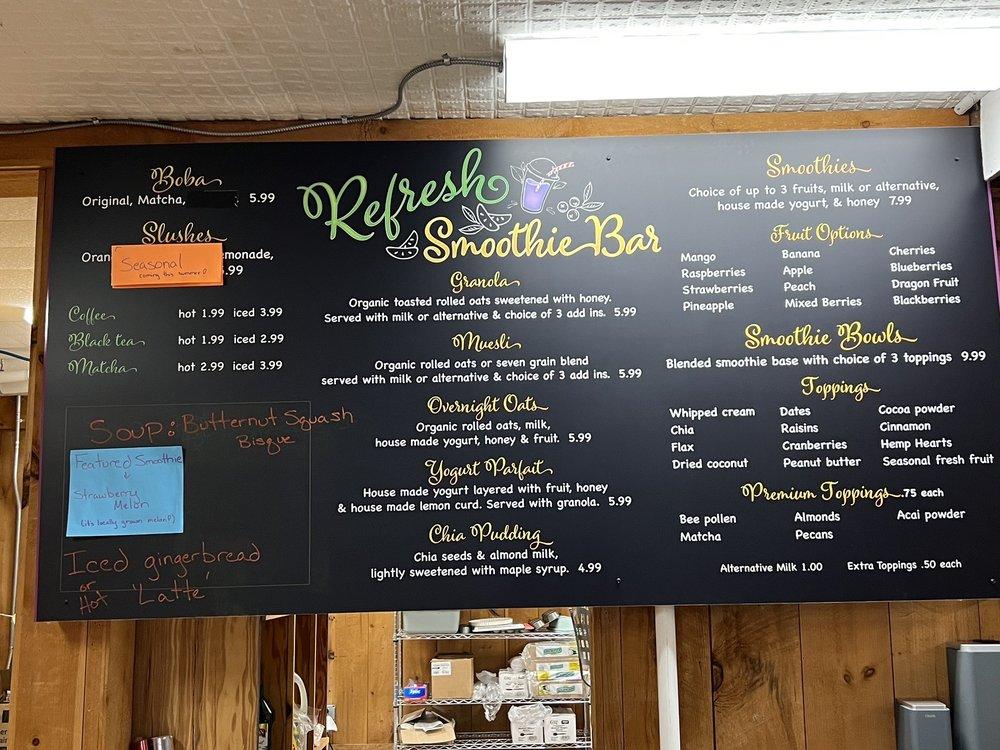 Boba
Original, Matcha, 5.99
Slushes
emonade,
.99
Seasonal
coming this summer!
Coffee hot 1.99 iced 3.99
Black tea hot 1.99 iced 2.99
Matcha hot 2.99 iced 3.99
Soup: Butternut Squash
Bisque
Featured Smoothie
Strawberry
Melon
(it's locally grown melon!)
Iced gingerbread
or
Hot 'Latte'
Refresh
Smoothie Bar
Granola
Organic toasted rolled oats sweetened with honey.
Served with milk or alternative & choice of 3 add ins. 5.99
Muesli
Organic rolled oats or seven grain blend
served with milk or alternative & choice of 3 add ins. 5.99
Overnight Oats
Organic rolled oats, milk,
house made yogurt, honey & fruit. 5.99
Yogurt Parfait
House made yogurt layered with fruit, honey
& house made lemon curd. Served with granola. 5.99
Chia Pudding
Chia seeds & almond milk,
lightly sweetened with maple syrup. 4.99
Smoothies
Choice of up to 3 fruits, milk or alternative,
house made yogurt, & honey 7.99
Fruit Options
Mango Banana Cherries
Raspberries Apple Blueberries
Strawberries Peach Dragon Fruit
Pineapple Mixed Berries Blackberries
Smoothie Bowls
Blended smoothie base with choice of 3 toppings 9.99
Toppings
Whipped cream Dates Cocoa powder
Chia Raisins Cinnamon
Flax Cranberries Hemp Hearts
Dried coconut Peanut butter Seasonal fresh fruit
Premium Toppings .75 each
Bee pollen Almonds Acai powder
Matcha Pecans
Alternative Milk 1.00 Extra Toppings .50 each